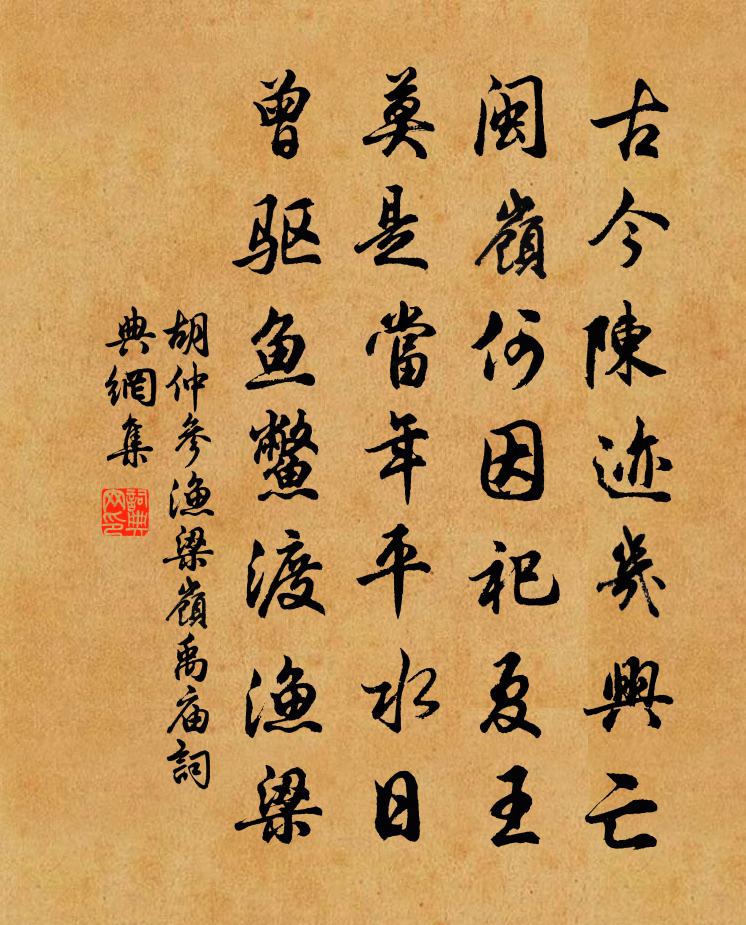 古今陳迹幾興亡
閩嶺何因祀夏王
莫是當年平水日
曾驱鱼鱉渡漁梁
胡仲参漁梁嶺禹庙詞
典網集
詞典網印